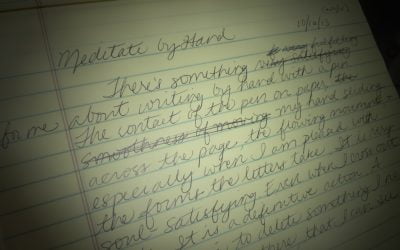 10/10/13
Meditate by Hand
There's something
for me about writing by hand with a pen.
The contact of the pen on paper, the
smoothness of moving my hand sliding
across the page, the flowing movement
especially when I am pleased with
the forms the letters take. It is very
soul-satisfying. Even when I cross out
It is a definitive action.
is to delete something I
there that I can